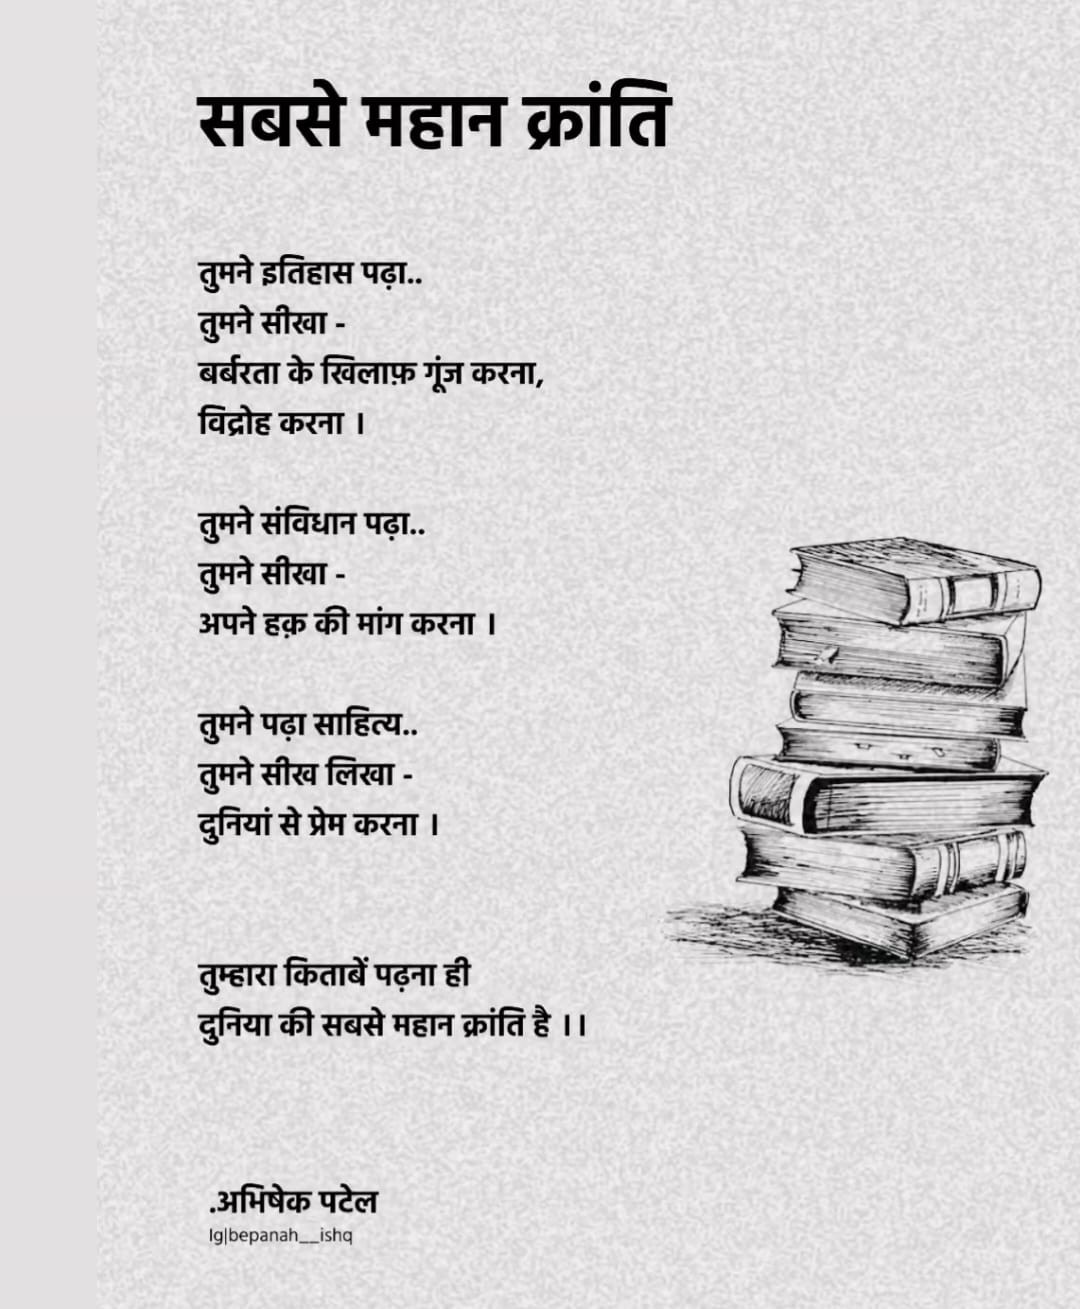 सबसे महान क्रांति
तुमने इतिहास पढ़ा..
तुमने सीखा -
बर्बरता के खिलाफ़ गूंज करना,
विद्रोह करना ।
तुमने संविधान पढ़ा..
तुमने सीखा -
अपने हक़ की मांग करना ।
तुमने पढ़ा साहित्य..
तुमने सीख लिखा -
दुनियां से प्रेम करना ।
तुम्हारा किताबें पढ़ना ही
दुनिया की सबसे महान क्रांति है ।।
.अभिषेक पटेल
Ig|bepanah__ishq